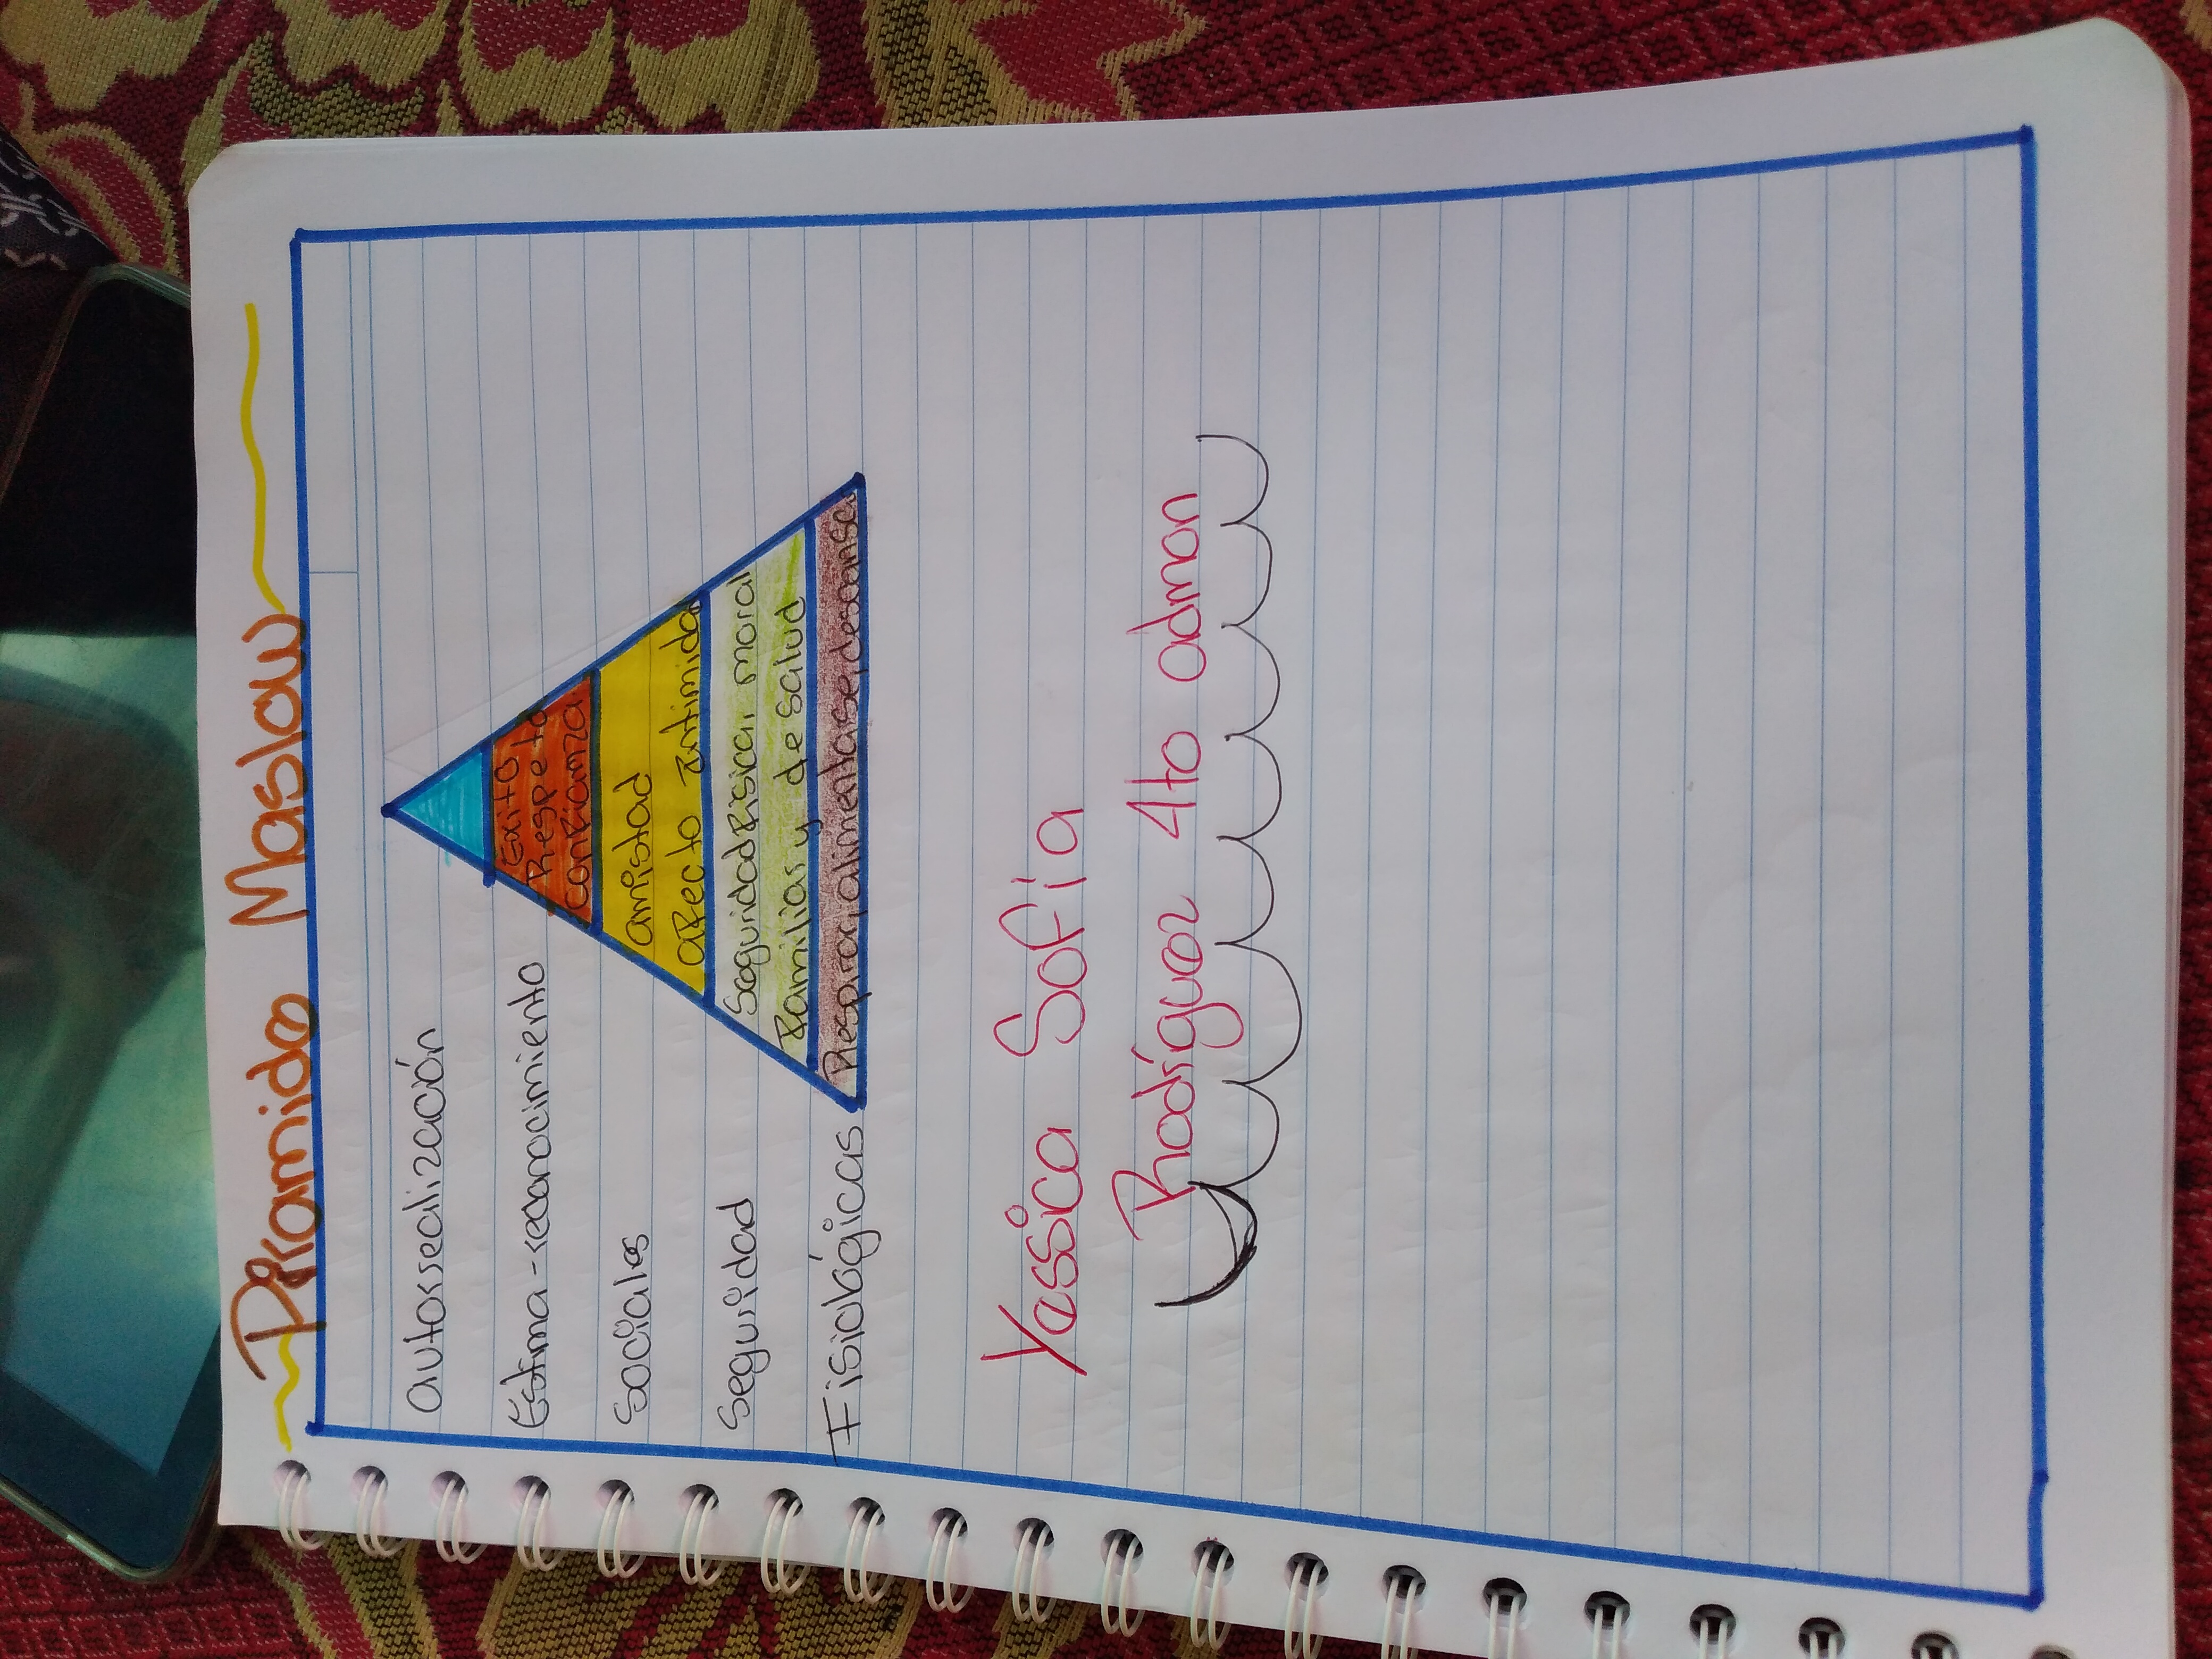 Piramide Maslow
autorrealización
Estima-reconocimiento
Exito
Respeto
confianza
Sociales
amistad
afecto intimidad
Seguridad
Seguridad fisica, moral
Familiar y de salud
Fisiológicas
Respirar, alimentarse, descansar
Yessica Sofia
Rodríguez 4to admon